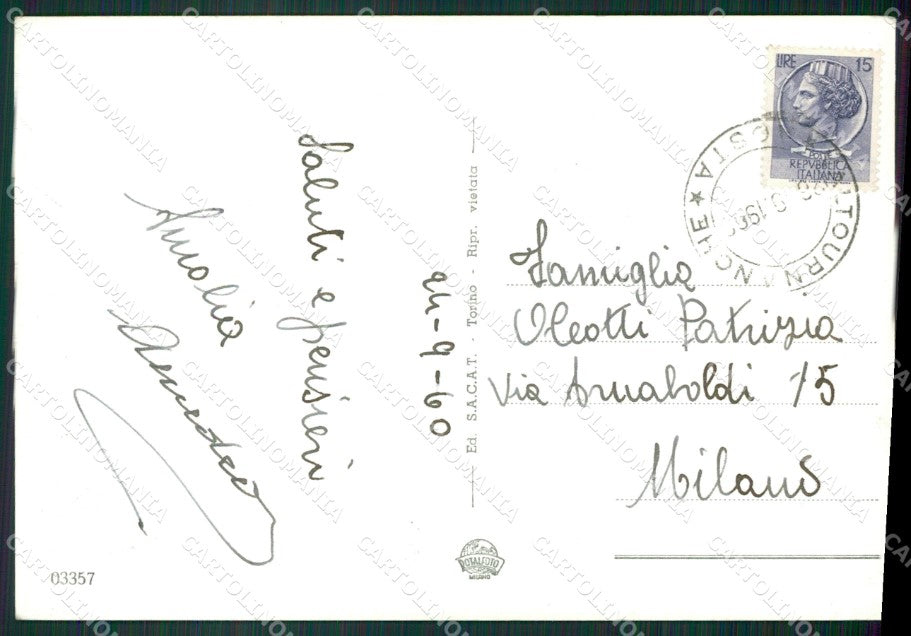 Saluti e pensieri
Amalia
Amedeo
24-9-60
Ed. S.A.C.A.T. - Torino - Ripr. vietata
LIRE 15
REPVBBLICA
ITALIANA
TOURNANCHE ★ OSTA
1960
Famiglia
Oleotti Patrizia
Via Arnaboldi 15
Milano
TOTALFOTO
MILANO
03357
CARTOLINOMANIA